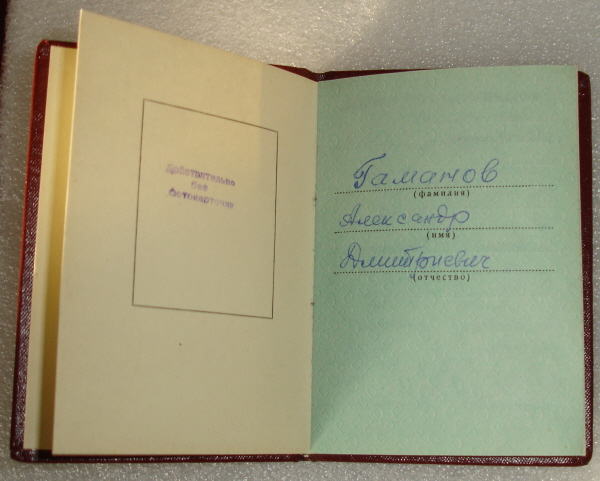 Действительно
без
фотокарточки
Гаманов
(фамилия)
Александр
(имя)
Дмитриевич
(отчество)